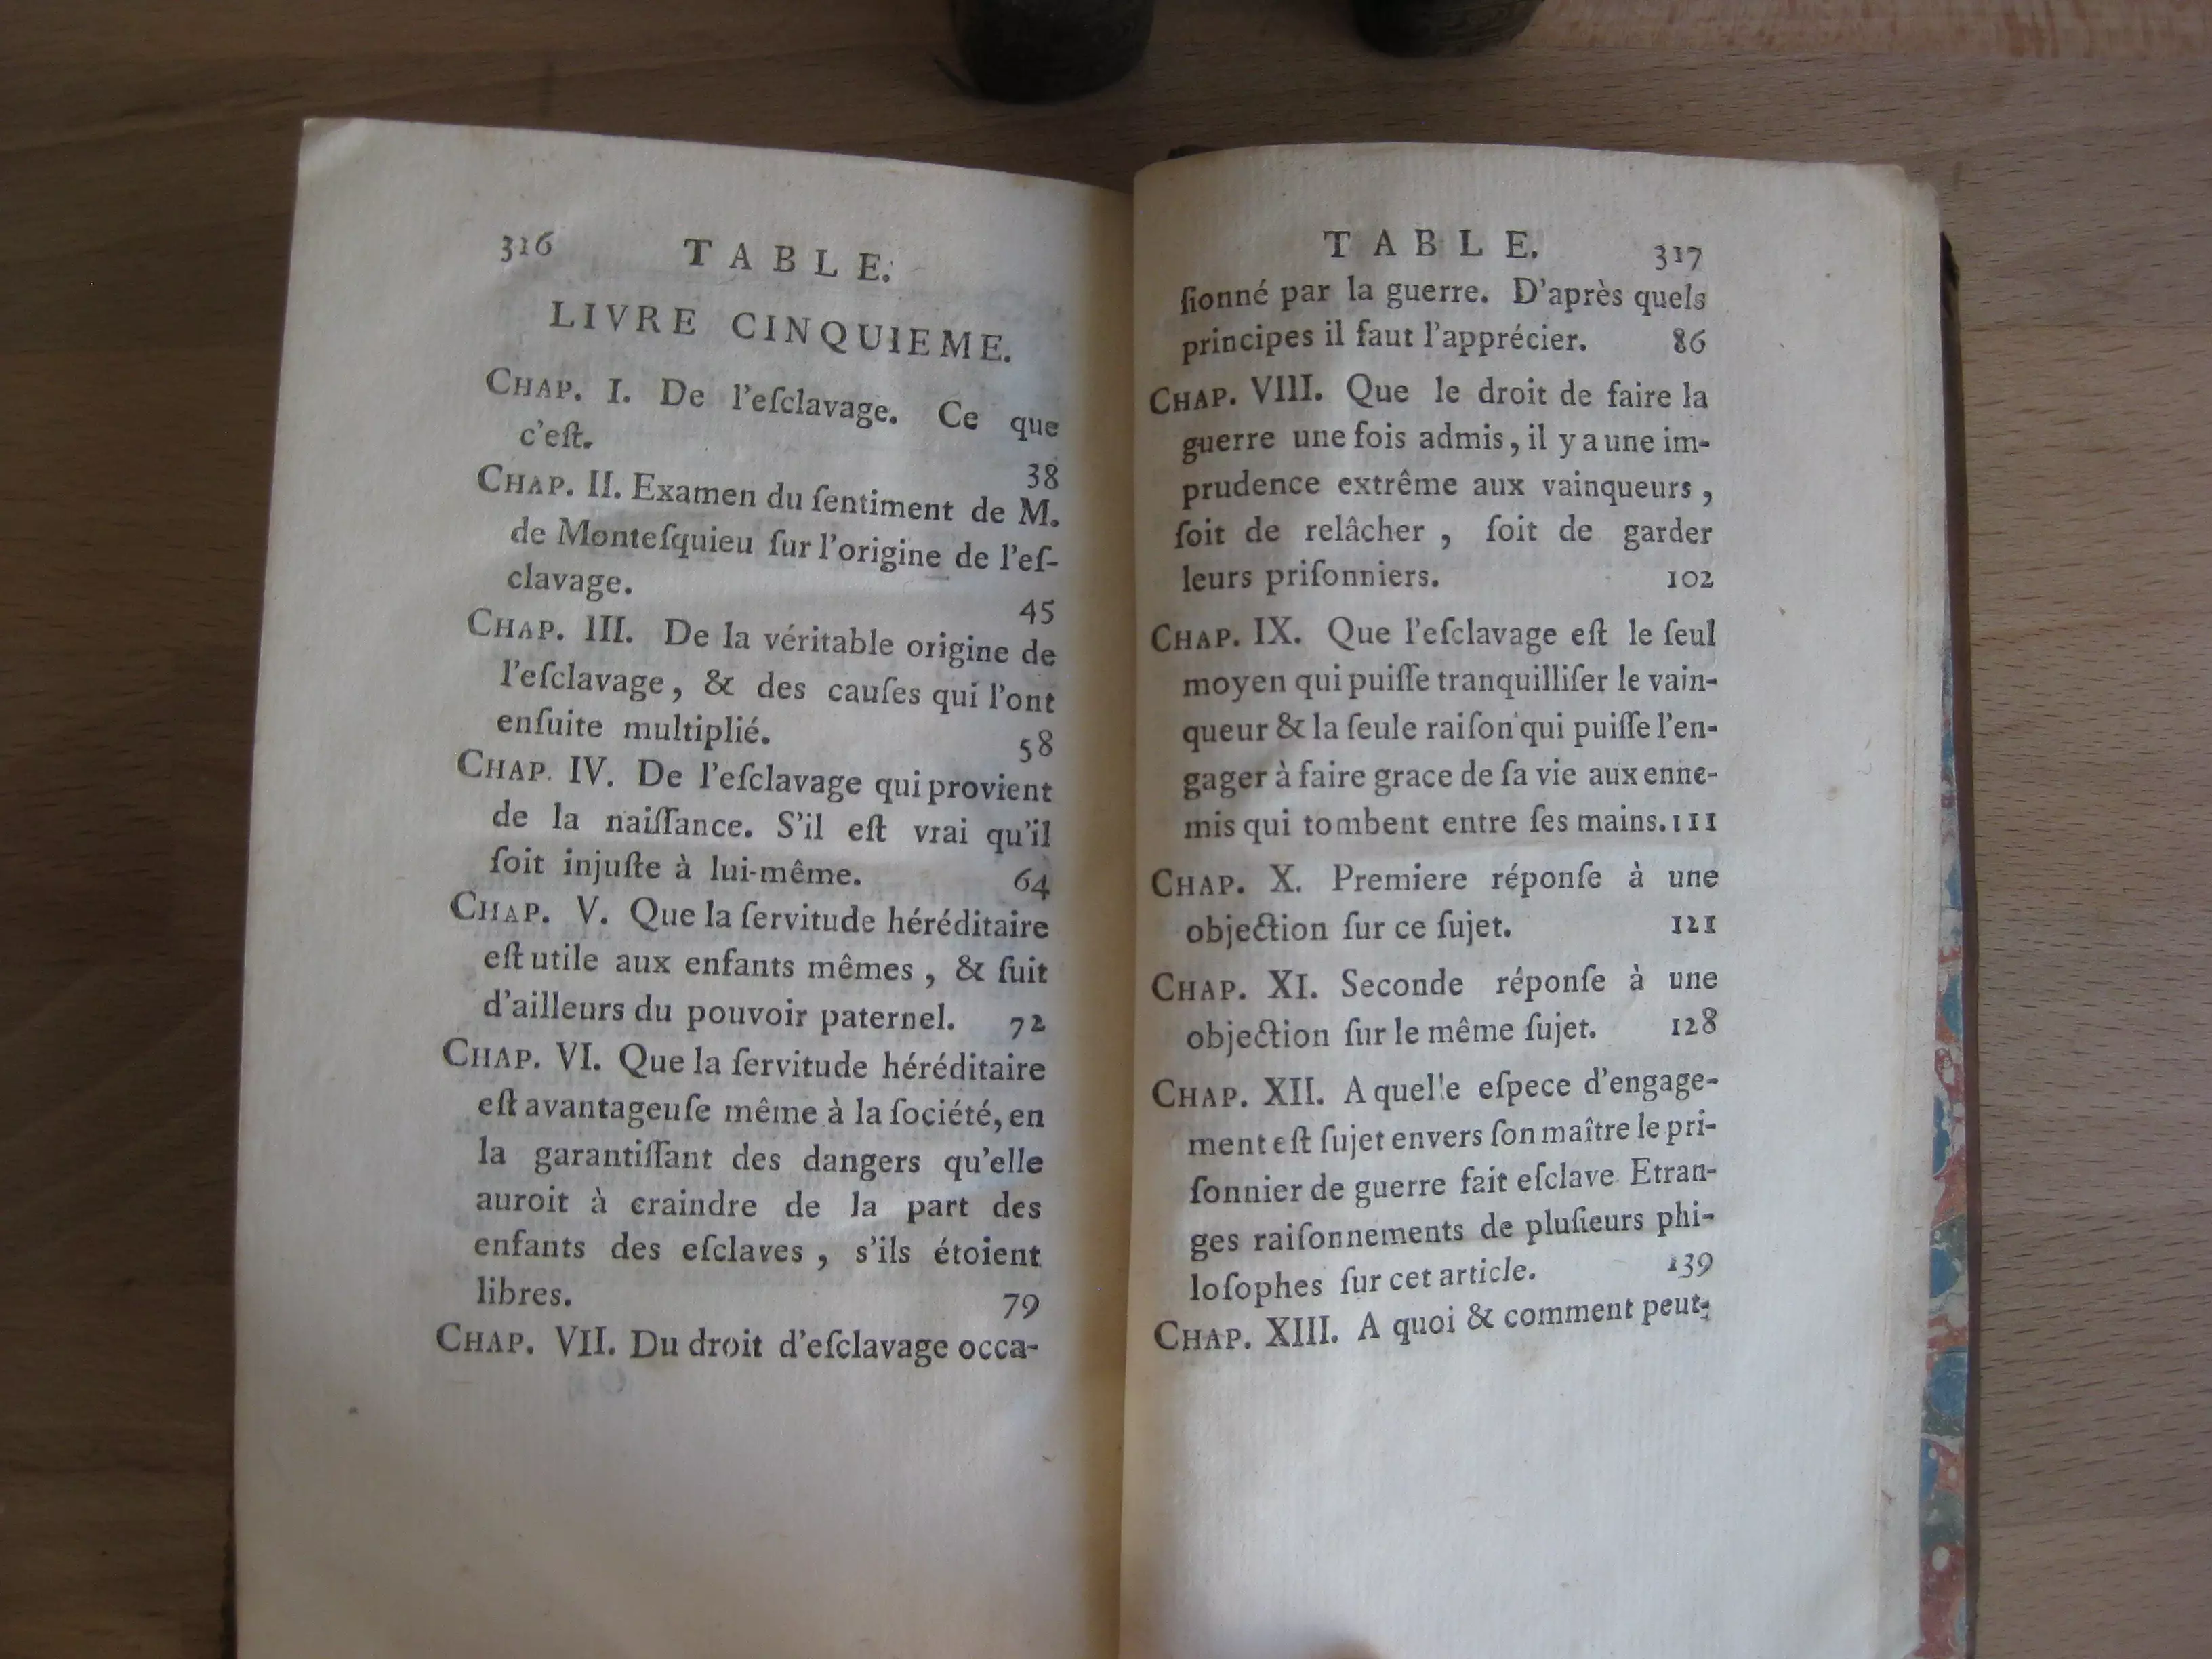 316 TABLE.
LIVRE CINQUIEME.
CHAP. I. De l'eſclavage. Ce que
c'eſt. 38
CHAP. II. Examen du ſentiment de M.
de Monteſquieu ſur l'origine de l'eſ-
clavage. 45
CHAP. III. De la véritable origine de
l'eſclavage, & des cauſes qui l'ont
enſuite multiplié. 58
CHAP. IV. De l'eſclavage qui provient
de la naiſſance. S'il eſt vrai qu'il
ſoit injuſte à lui-même. 64
CHAP. V. Que la ſervitude héréditaire
eſt utile aux enfants mêmes, & ſuit
d'ailleurs du pouvoir paternel. 72
CHAP. VI. Que la ſervitude héréditaire
eſt avantageuſe même à la ſociété, en
la garantiſſant des dangers qu'elle
auroit à craindre de la part des
enfants des eſclaves, s'ils étoient
libres. 79
CHAP. VII. Du droit d'eſclavage occa-
TABLE. 317
ſionné par la guerre. D'après quels
principes il faut l'apprécier. 86
CHAP. VIII. Que le droit de faire la
guerre une fois admis, il y a une im-
prudence extrême aux vainqueurs,
ſoit de relâcher, ſoit de garder
leurs priſonniers. 102
CHAP. IX. Que l'eſclavage eſt le ſeul
moyen qui puiſſe tranquilliſer le vain-
queur & la ſeule raiſon qui puiſſe l'en-
gager à faire grace de ſa vie aux enne-
mis qui tombent entre ſes mains. 111
CHAP. X. Premiere réponſe à une
objection ſur ce ſujet. 121
CHAP. XI. Seconde réponſe à une
objection ſur le même ſujet. 128
CHAP. XII. A quelle eſpece d'engage-
ment eſt ſujet envers ſon maître le pri-
ſonnier de guerre fait eſclave Etran-
ges raiſonnements de pluſieurs phi-
loſophes ſur cet article. 139
CHAP. XIII. A quoi & comment peut-